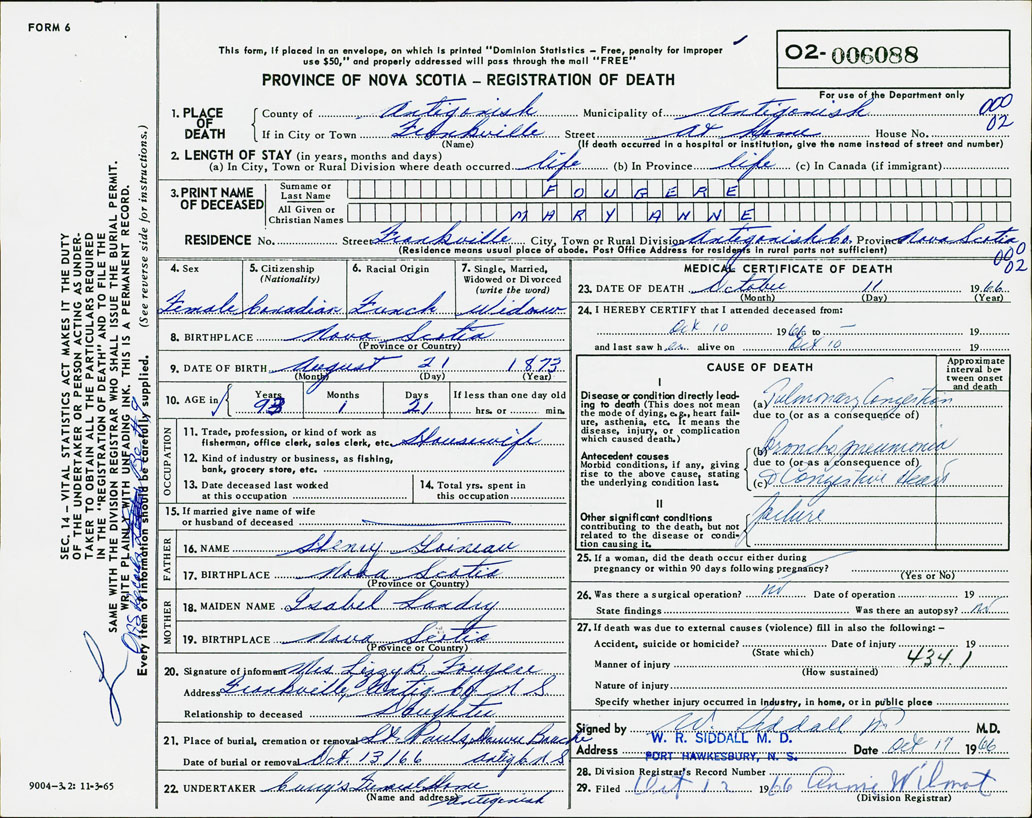 FORM 6
This form, if placed in an envelope, on which is printed "Dominion Statistics – Free, penalty for improper
use $50," and properly addressed will pass through the mail "FREE"
PROVINCE OF NOVA SCOTIA – REGISTRATION OF DEATH
O2- 006088
For use of the Department only
000
02
1. PLACE OF DEATH
County of Antigonish Municipality of Antigonish
If in City or Town Frankville Street At Home House No.
(Name) (If death occurred in a hospital or institution, give the name instead of street and number)
2. LENGTH OF STAY (in years, months and days)
(a) In City, Town or Rural Division where death occurred life (b) In Province life (c) In Canada (if immigrant)
3. PRINT NAME OF DECEASED
Surname or Last Name FOUGERE
All Given or Christian Names MARY ANNE
RESIDENCE No. Street Frankville City, Town or Rural Division Antigonish Co. Province Nova Scotia
(Residence means usual place of abode. Post Office Address for residents in rural parts not sufficient)
000
02
4. Sex Female
5. Citizenship (Nationality) Canadian
6. Racial Origin French
7. Single, Married, Widowed or Divorced (write the word) Widow
8. BIRTHPLACE Nova Scotia
(Province or Country)
9. DATE OF BIRTH August 21 1873
(Month) (Day) (Year)
10. AGE in Years 93 Months 1 Days 21 If less than one day old hrs. or min.
OCCUPATION
11. Trade, profession, or kind of work as
fisherman, office clerk, sales clerk, etc. Housewife
12. Kind of industry or business, as fishing,
bank, grocery store, etc.
13. Date deceased last worked
at this occupation
14. Total yrs. spent in
this occupation
15. If married give name of wife
or husband of deceased
FATHER
16. NAME Henry
17. BIRTHPLACE Nova Scotia
(Province or Country)
MOTHER
18. MAIDEN NAME Isabel Landry
19. BIRTHPLACE Nova Scotia
(Province or Country)
20. Signature of informant Mrs Lizzy B. Fougere
Address Frankville, Antig Co N S
Relationship to deceased Daughter
21. Place of burial, cremation or removal St. Pauls, Havre Bouche
Date of burial or removal Oct. 13/66 Antig N S
22. UNDERTAKER Curry's Funeral Home
(Name and address) Antigonish
MEDICAL CERTIFICATE OF DEATH
23. DATE OF DEATH October 11 1966
(Month) (Day) (Year)
24. I HEREBY CERTIFY that I attended deceased from:
Oct 10 1966 to – 19
and last saw her alive on Oct 10 19
CAUSE OF DEATH
Approximate interval between onset and death
I
Disease or condition directly leading
to death (This does not mean
the mode of dying, e.g., heart failure,
asthenia, etc. It means the
disease, injury, or complication
which caused death.)
(a) Pulmonary Congestion
due to (or as a consequence of)
Antecedent causes
Morbid conditions, if any, giving
rise to the above cause, stating
the underlying condition last.
(b) bronchopneumonia
due to (or as a consequence of)
(c) Congestive Heart
failure
II
Other significant conditions
contributing to the death, but not
related to the disease or condition
causing it.
25. If a woman, did the death occur either during
pregnancy or within 90 days following pregnancy?
(Yes or No)
26. Was there a surgical operation? no Date of operation 19
State findings Was there an autopsy? no
27. If death was due to external causes (violence) fill in also the following: –
Accident, suicide or homicide? Date of injury 19
(State which)
434.1
Manner of injury
(How sustained)
Nature of injury
Specify whether injury occurred in industry, in home, or in public place
Signed by W Siddall M.D.
Address W. R. SIDDALL M. D.
PORT HAWKESBURY, N. S.
Date Oct 17 1966
28. Division Registrar's Record Number
29. Filed Oct 12 1966 Annie Wilmot
(Division Registrar)
SEC. 14 – VITAL STATISTICS ACT MAKES IT THE DUTY
OF THE UNDERTAKER OR PERSON ACTING AS UNDERTAKER
TO OBTAIN ALL THE PARTICULARS REQUIRED
IN THE "REGISTRATION OF DEATH" AND TO FILE THE
SAME WITH THE DIVISION REGISTRAR WHO SHALL ISSUE THE BURIAL PERMIT.
WRITE PLAINLY WITH UNFADING INK. THIS IS A PERMANENT RECORD.
Every item of information should be carefully supplied. (See reverse side for instructions.)
9004-3.2: 11-3-65